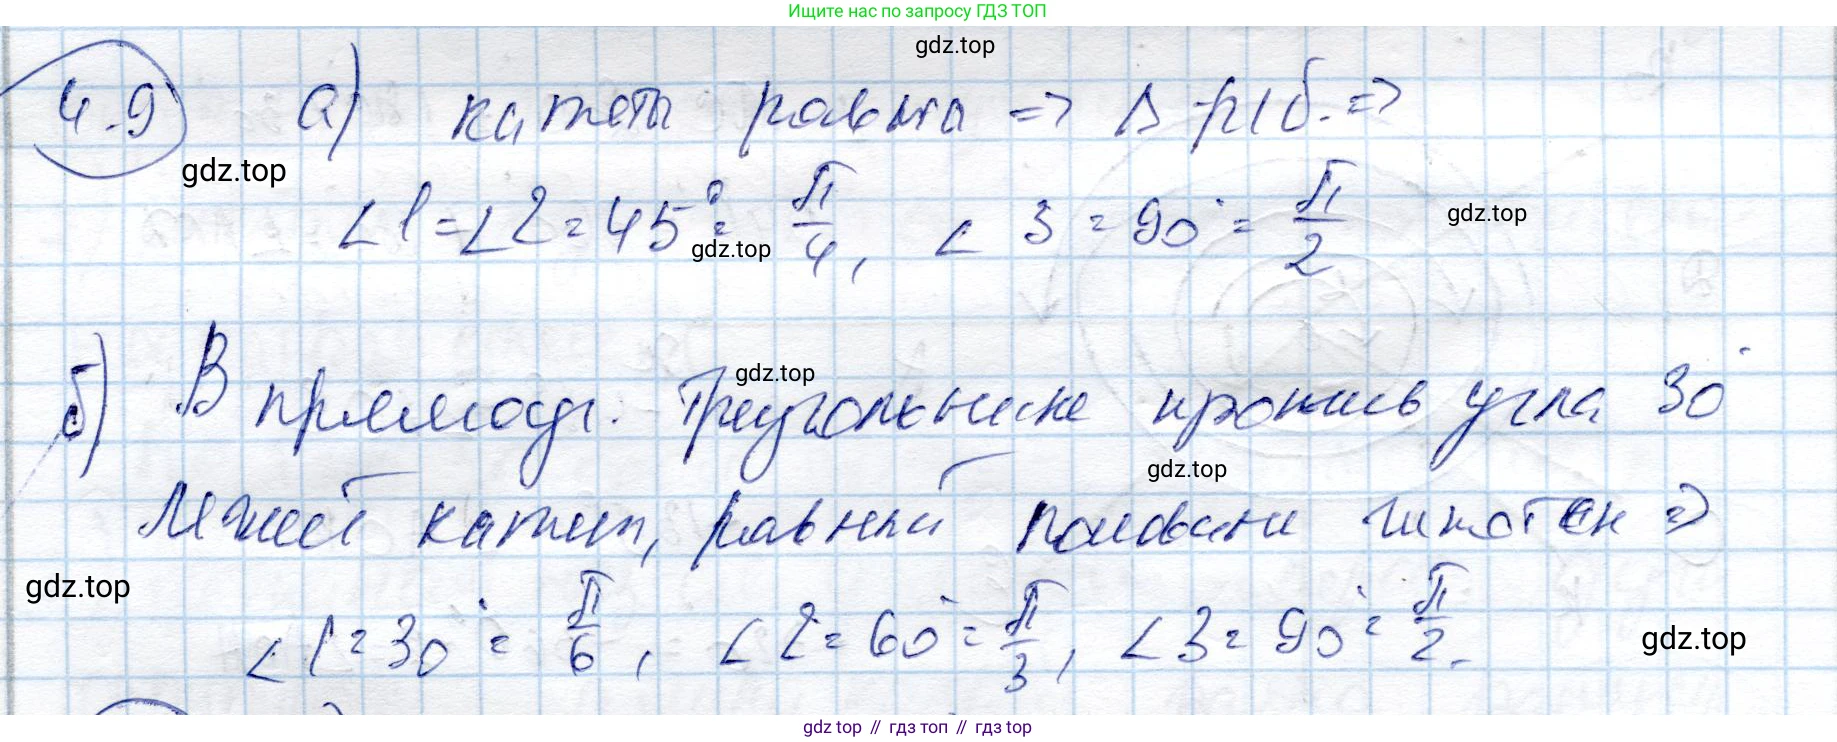 Ищите нас по запросу ГДЗ ТОП
gdz.top
4.9 а) катеты равны => Δ-р/б. =>
gdz.top
∠1 = ∠2 = 45° = π/4, ∠3 = 90° = π/2
gdz.top
gdz.top
gdz.top
б) В прямоуг. треугольнике против угла 30°
gdz.top
лежит катет, равный половине гипотен =>
gdz.top
∠1 = 30° = π/6, ∠2 = 60° = π/3, ∠3 = 90° = π/2.
gdz.top
gdz.top // гдз топ // гдз top